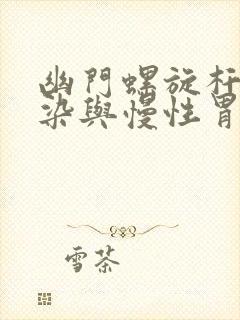 幽門螺旋杆
染與慢性胃
雪茶